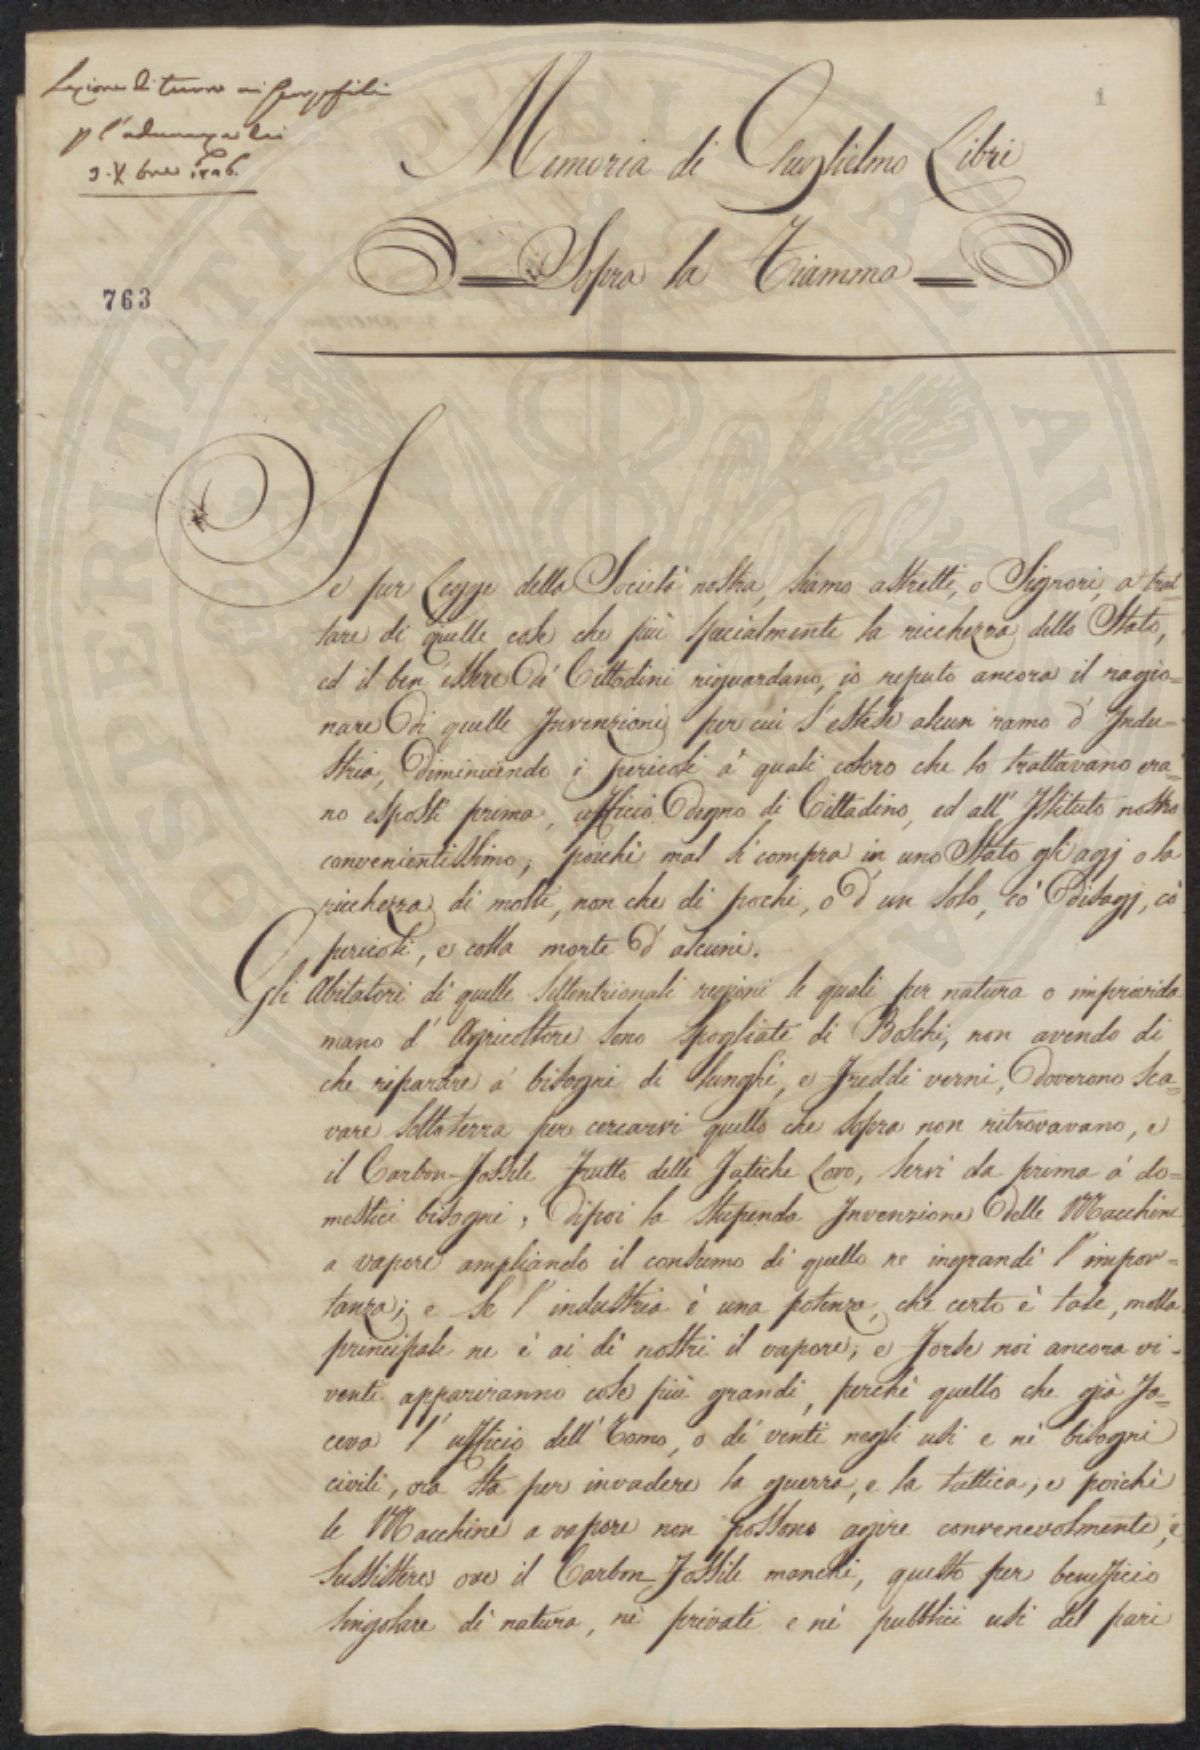 Lezione di turno ai Georgofili
p l'adunanza dei
3. Xbre 1826.
1
Memoria di Guglielmo Libri
Sopra la Fiamma
763
Se per Legge della Società nostra, siamo astretti, o Signori, a trat-
tare di quelle cose che più specialmente la ricchezza dello Stato,
ed il ben'essere de' Cittadini riguardano, io reputo ancora il ragio-
nare di quelle Invenzioni per cui s'estese alcun ramo d'Indu-
stria, diminuendo i pericoli a' quali coloro che lo trattavano era-
no esposti prima, ufficio degno di Cittadino, ed all'Istituto nostro
convenientissimo; poichè mal si compra in uno Stato gli agj o la
ricchezza di molti, non che di pochi, o d'un solo, co' disagj, co'
pericoli, e colla morte d'alcuni.
Gli Abitatori di quelle settentrionali regioni le quali per natura o improvida
mano d'Agricoltore sono spogliate di Boschi, non avendo di
che riparare a' bisogni di lunghi, e freddi verni, doverono sca-
vare sottoterra per cercarvi quello che sopra non ritrovavano, e
il Carbon-fossile frutto delle fatiche loro, servì da prima a' do-
mestici bisogni; dipoi la stupenda Invenzione delle Macchine
a vapore ampliando il consumo di quello ne ingrandì l'impor-
tanza; e se l'industria è una potenza, che certo è tale, molla
principale ne è ai dì nostri il vapore; e forse noi ancora vi-
venti appariranno cose più grandi, perchè quello che già fa-
ceva l'ufficio dell'Uomo, o de' venti negli usi e ne' bisogni
civili, ora sta per invadere la guerra, e la tattica; e poichè
le Macchine a vapore non possono agire convenevolmente, e
sussistere ove il Carbon fossile manchi, questo per beneficio
singolare di natura, ne' privati e ne' pubblici usi del pari